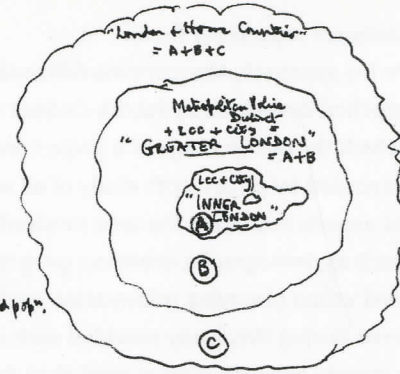 "London + Home Counties"
= A+B+C
Metropolitan Police
District
+ LCC + City =
"GREATER LONDON"
= A+B
(LCC + City)
"INNER
LONDON"
A
B
d popn.
C